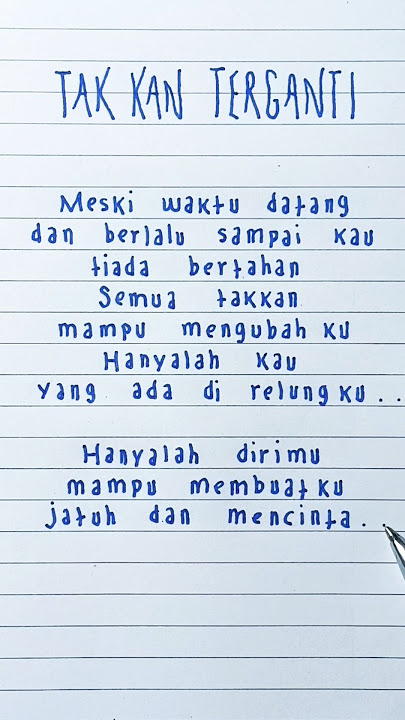 TAK KAN TERGANTI
Meski waktu datang
dan berlalu sampai kau
tiada bertahan
Semua takkan
mampu mengubah ku
Hanyalah kau
yang ada di relung ku . .
Hanyalah dirimu
mampu membuat ku
jatuh dan mencinta . .